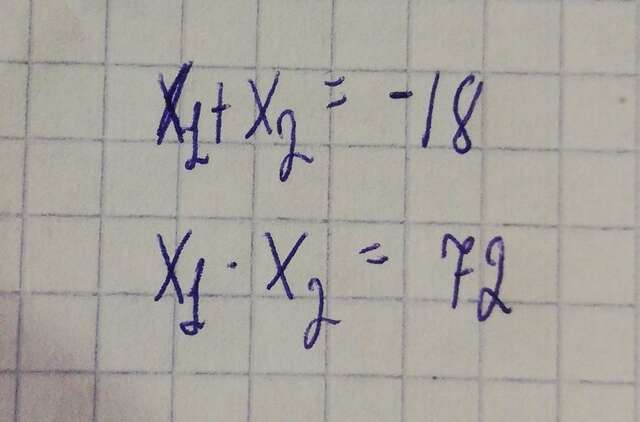 x₁ + x₂ = -18
x₁ · x₂ = 72